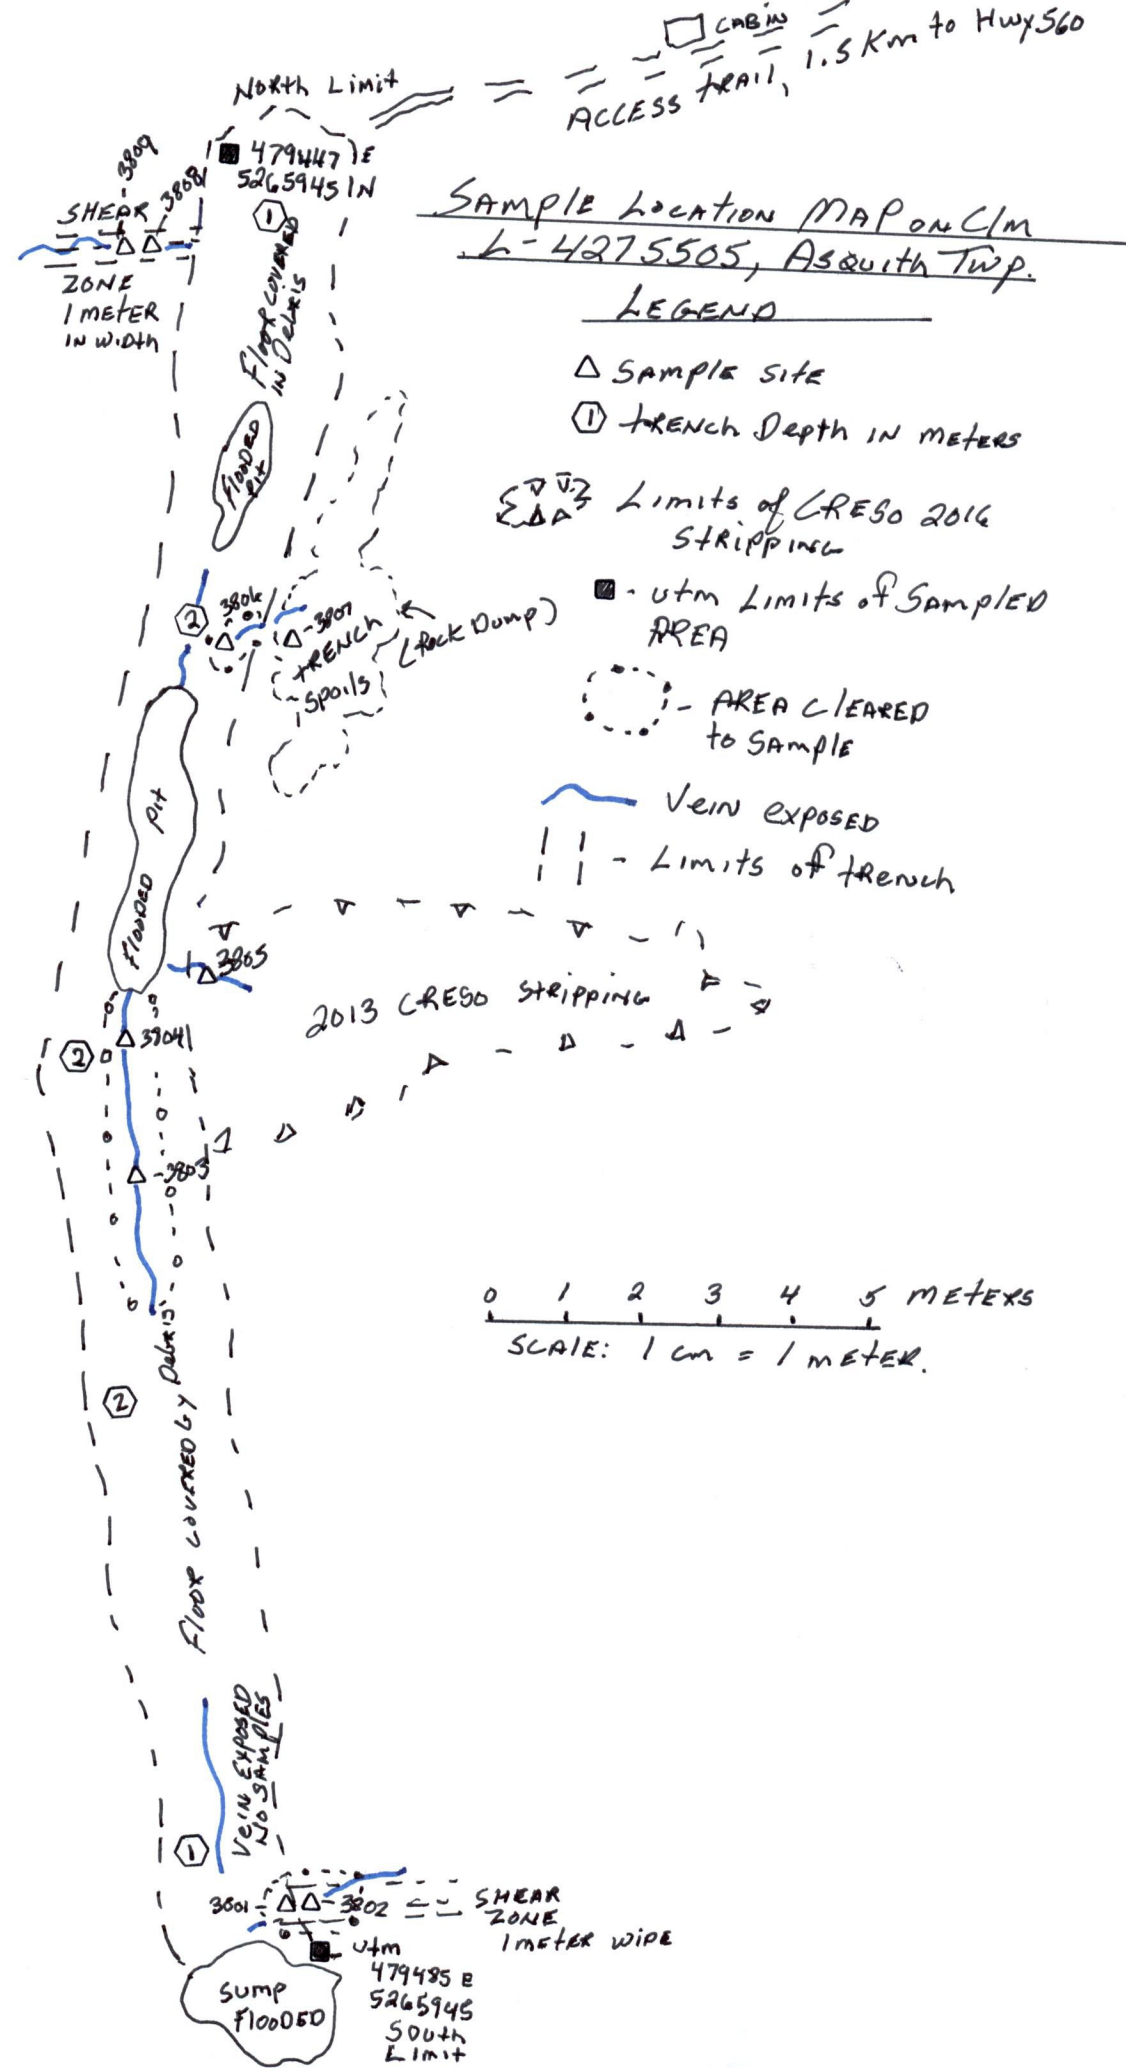 CABIN
ACCESS TRAIL, 1.5 Km to Hwy 560
North Limit
479447 E
5265945 N
1
3809
3808
SHEAR
ZONE
1 METER
IN WIDTH
Floor COVERED
IN Debris
SAMPLE LOCATION MAP ON Clm
L-4275505, Asquith Twp.
LEGEND
SAMPLE SITE
1 TRENCH Depth IN METERS
Limits of CRESO 2016
STRIPPING
- UTM LIMITS of SAMPLED
AREA
- AREA CLEARED
to SAMPLE
Vein exposed
- Limits of trench
FLOODED
Pit
2
3806
-3807
TRENCH
Spoils
(Rock Dump)
FLOODED Pit
3805
2013 CRESO STRIPPING
2
3804
-3803
0 1 2 3 4 5 METERS
SCALE: 1 cm = 1 METER.
2
Floor COVERED by Debris
VEIN EXPOSED
NO SAMPLES
1
3801-
-3802
SHEAR
ZONE
1 METER WIDE
UTM
479485 E
5265945
South
Limit
Sump
FLOODED